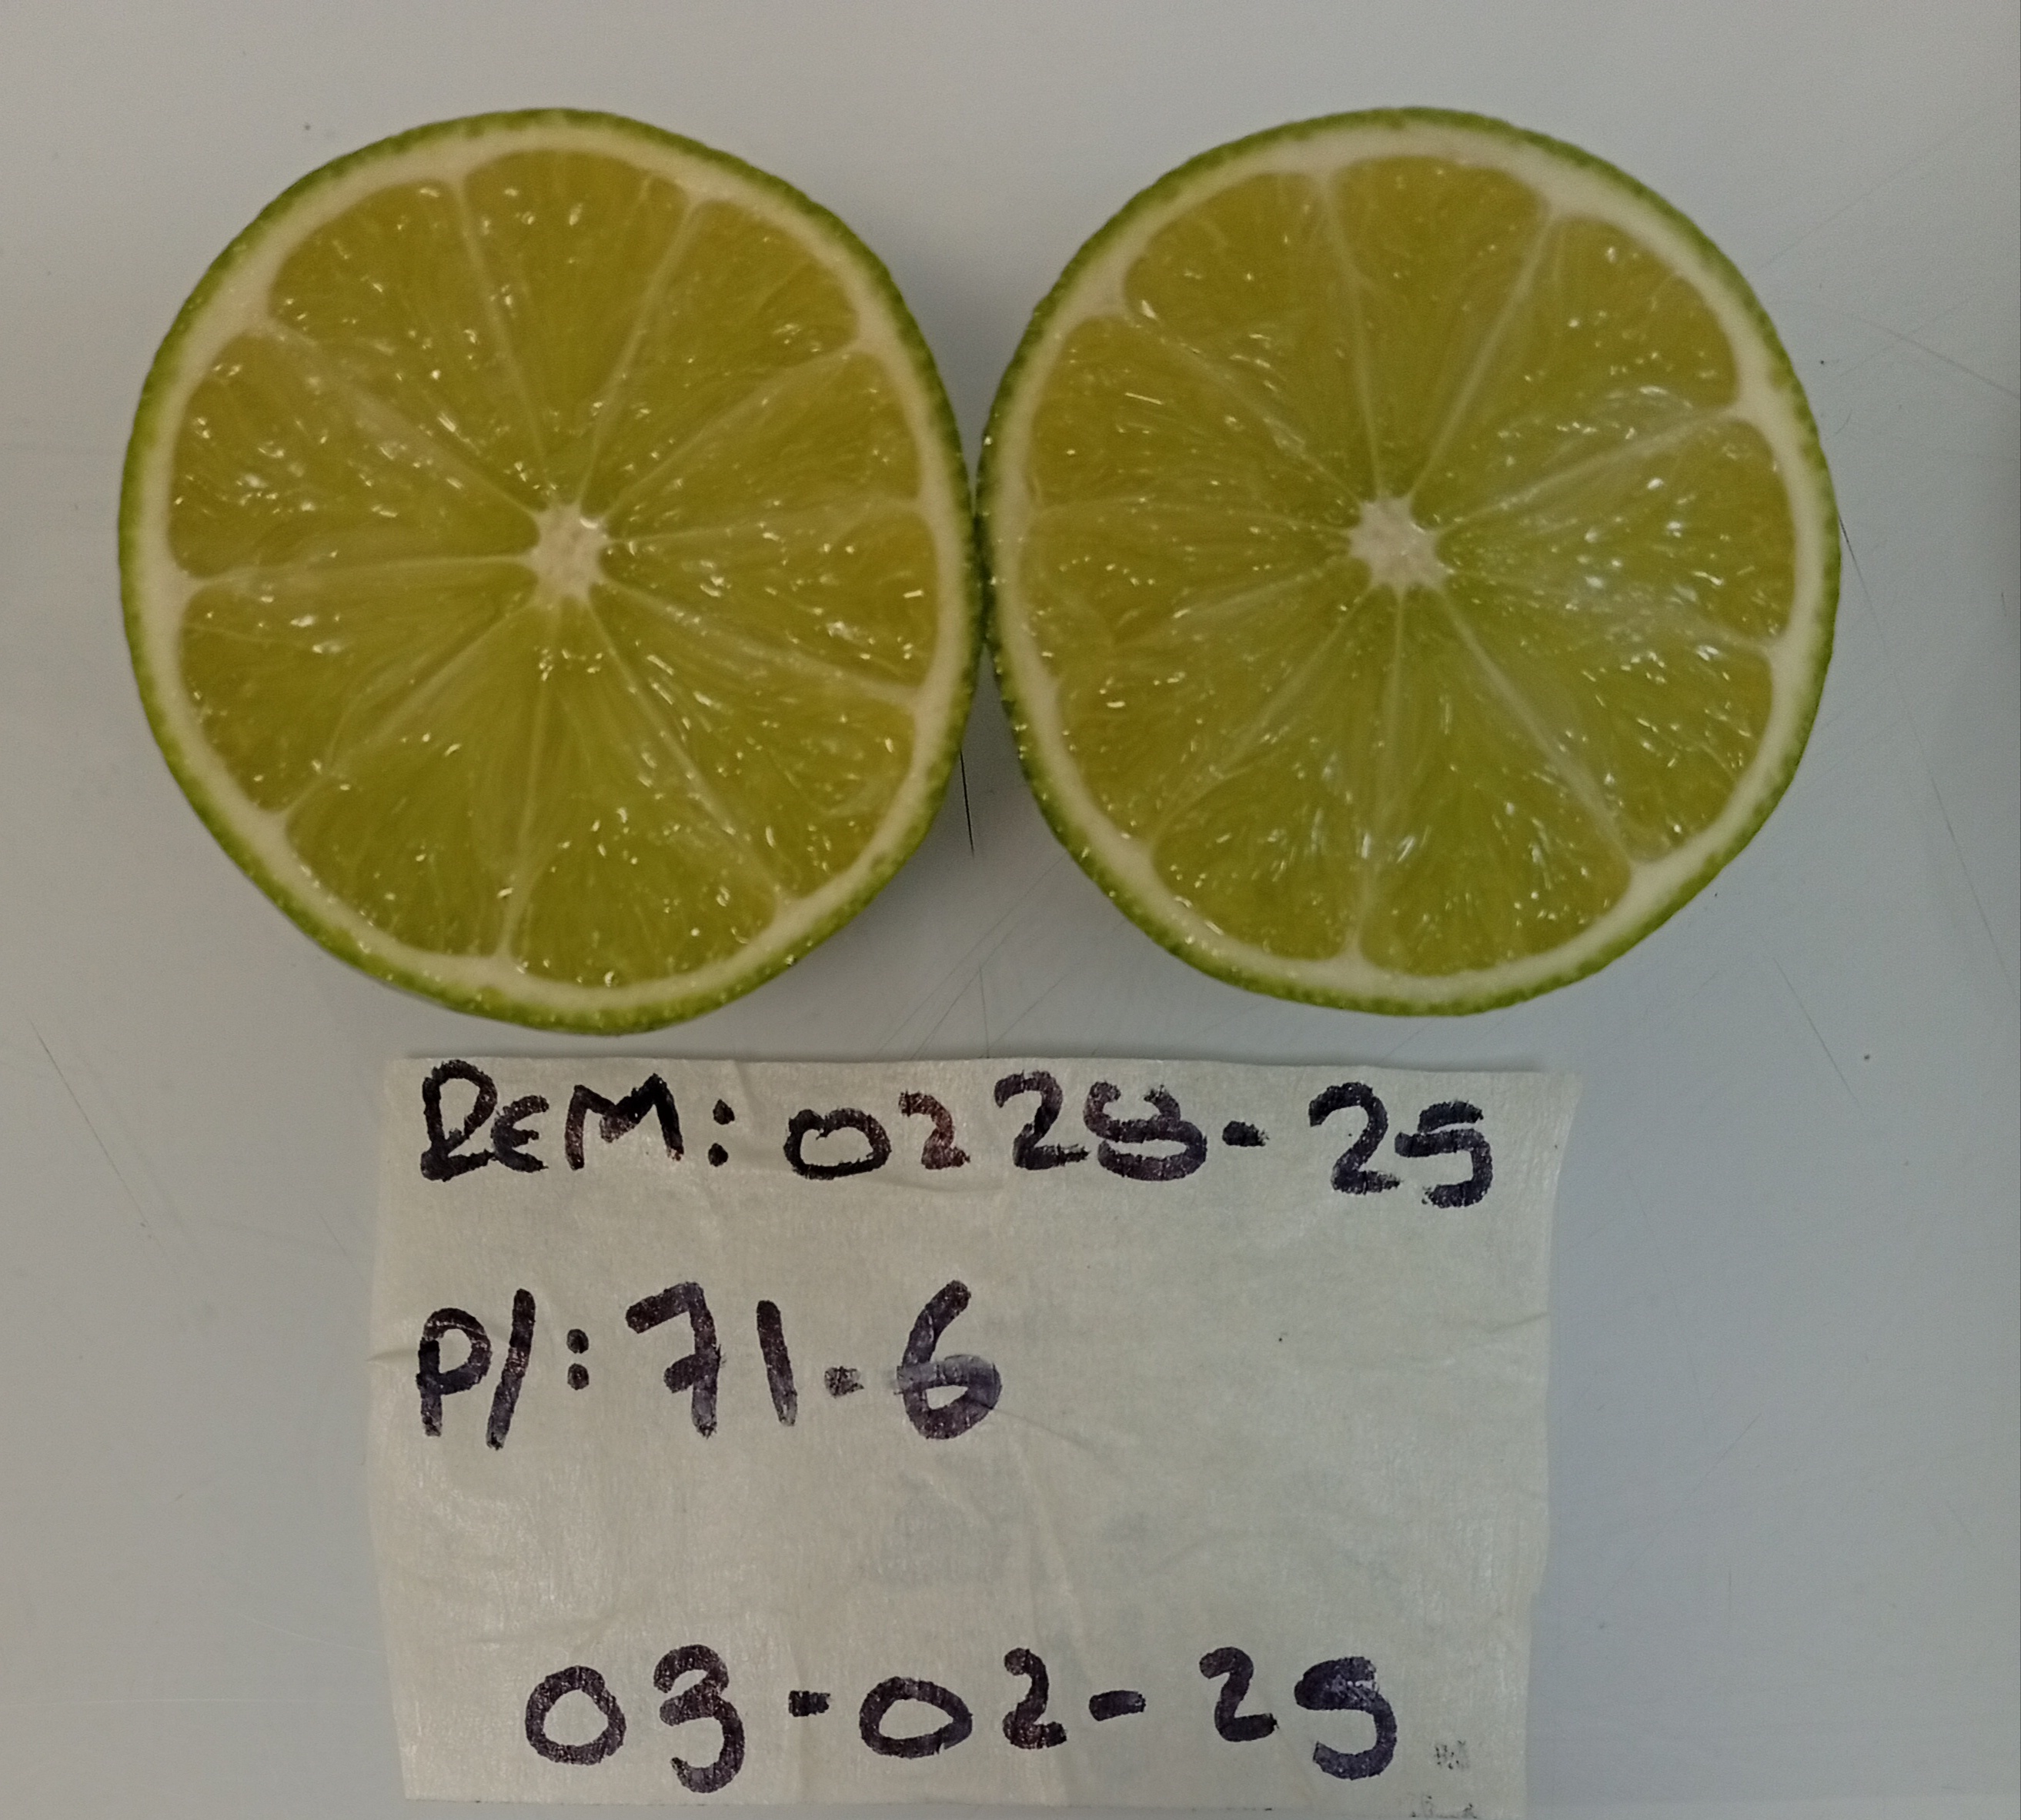 REM: 0228-25
P/: 71.6
03-02-25